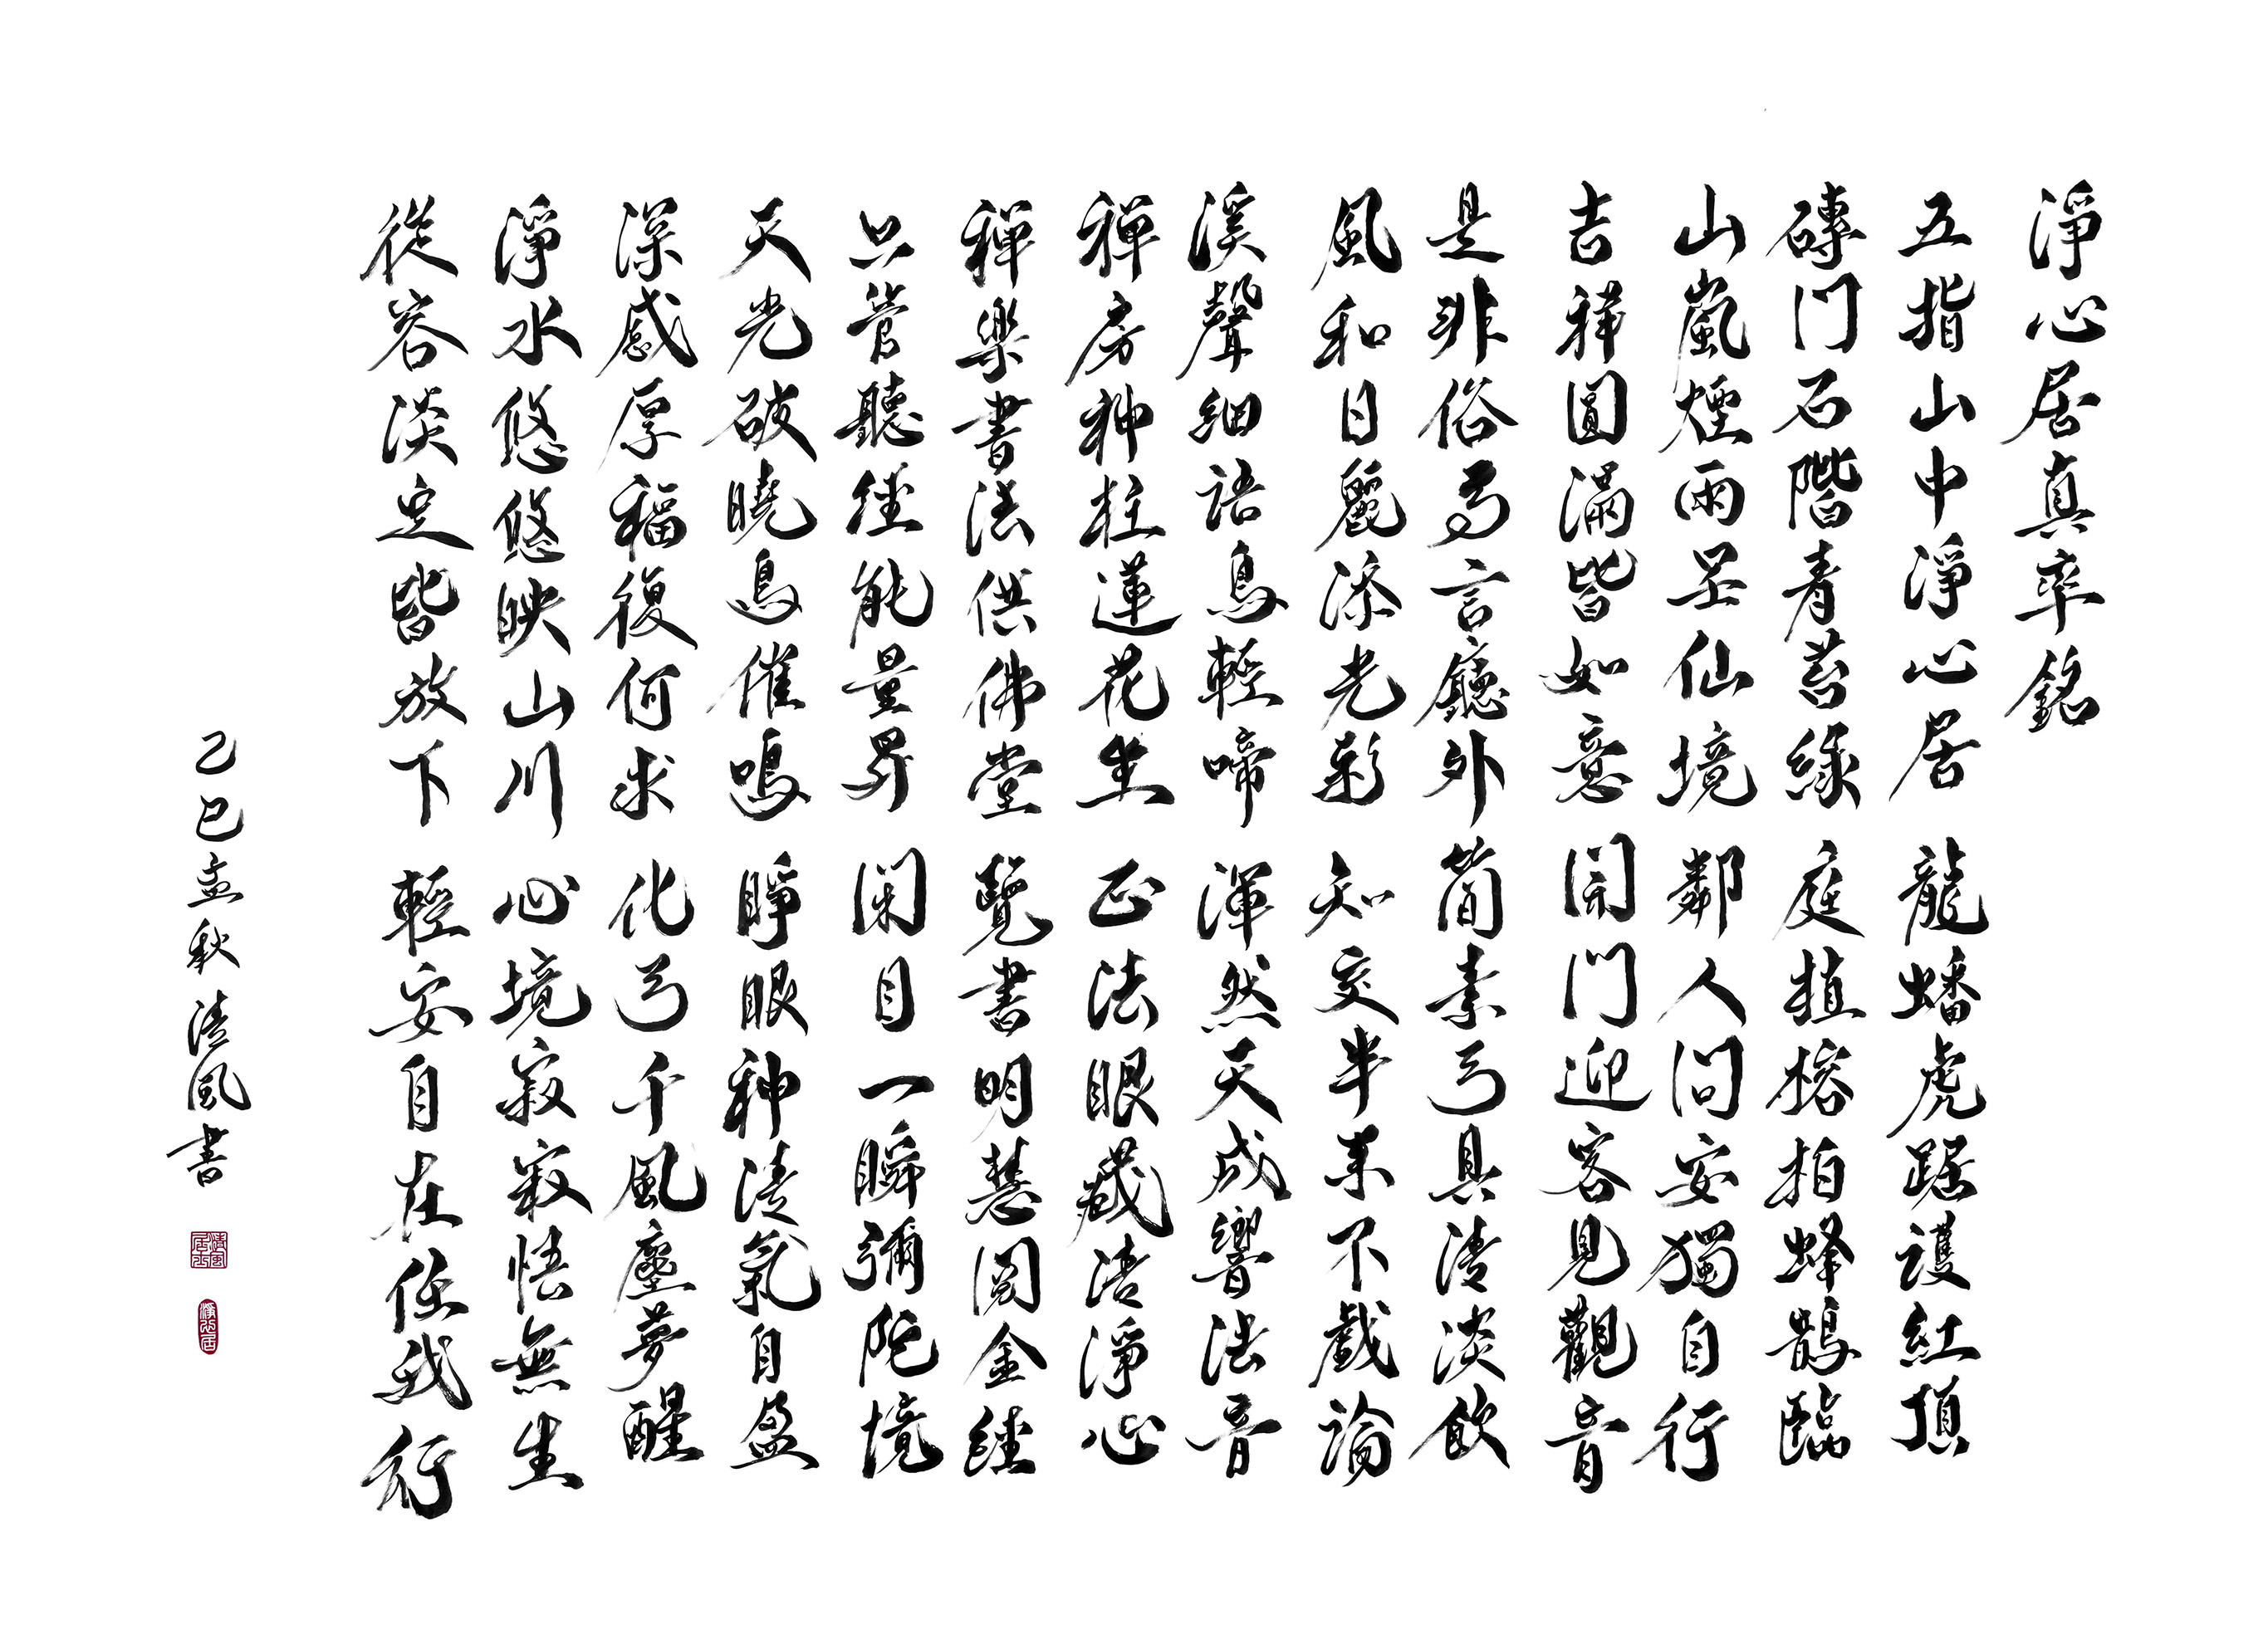 淨心居真率銘
五指山中淨心居 龍蟠虎踞護紅頂
磚門石階青苔綠 庭植榕柏蜂鵲臨
山嵐煙雨呈仙境 鄰人問安獨自行
吉祥圓滿皆如意 開門迎客見觀音
是非俗言廳外 簡素具清淡飲
風和日麗添光彩 知交半不戲論
溪聲細語鳥輕啼 渾然天成響法音
禪房神柱蓮花坐 正法眼藏清淨心
禪樂書法供佛堂 覽書明慧閱金經
只管聽經能量昇 閉目一瞬彌陀境
天光破曉鳥催鳴 睜眼神清氣自盈
深感厚福復何求 化千風塵夢醒
淨水悠悠映山川 心境寂寂悟無生
從容淡定皆放下 輕安自在任我行
乙巳孟秋 清風書